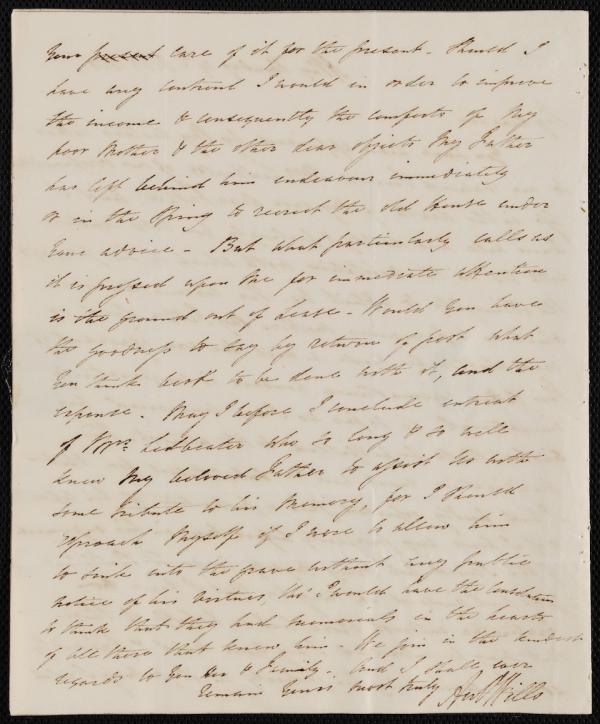 Your present care of it for the present. Should I
have any controul I would in order to improve
the income & consequently the comforts of My
poor Mother & the other dear objects My Father
has left behind him endeavour immediately
or in the Spring to reerect the old House under
Your advice - But what particularly calls as
it is pressed upon me for immediate attention
is the ground out of Lease - Would You have
the goodness to say by return of post what
You think best to be done with it, and the
expense. May I before I conclude entreat
of Mrs. Leadbeater who so long & so well
knew My beloved Father to assist us with
some tribute to his Memory, for I should
reproach Myself if I were to allow him
to sink into the grave without any public
notice of his virtues, tho' I would have the Consolation
to think that they had monuments in the hearts
of all those that knew him. We join in the kindest
regards to You her & Family. And I shall ever
remain Yours most truly